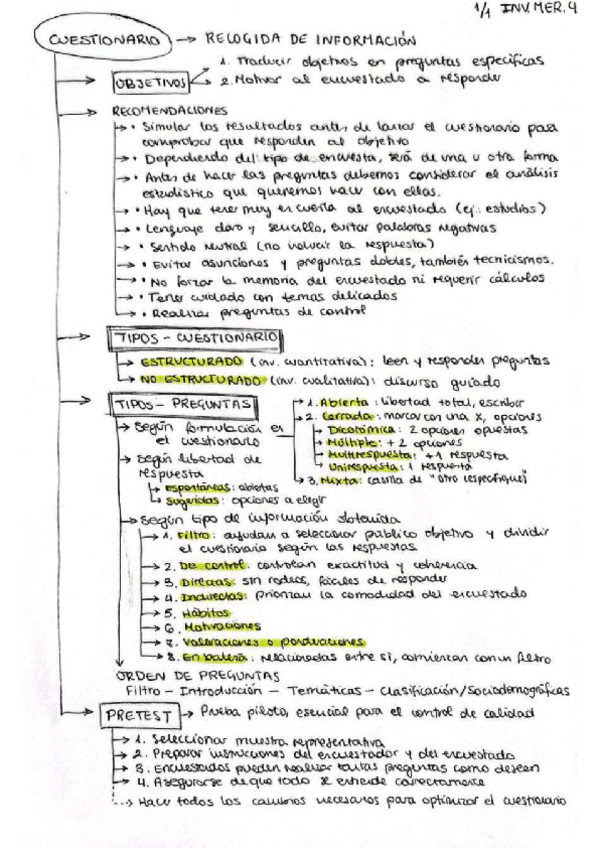 1/1 INV.MER.4
CUESTIONARIO → RECOGIDA DE INFORMACIÓN
OBJETIVOS
1. Traducir objetivos en preguntas específicas
2. Motivar al encuestado a responder
RECOMENDACIONES
• Simular los resultados antes de lanzar el cuestionario para
comprobar que responden al objetivo
• Dependiendo del tipo de encuesta, será de una u otra forma
• Antes de hacer las preguntas debemos considerar el análisis
estadístico que queremos hacer con ellas.
• Hay que tener muy en cuenta al encuestado (ej: estudios)
• Lenguaje claro y sencillo, evitar palabras negativas
• Sentido neutral (no inducir la respuesta)
• Evitar asunciones y preguntas dobles, también tecnicismos.
• No forzar la memoria del encuestado ni requerir cálculos
• Tener cuidado con temas delicados
• Realizar preguntas de control
TIPOS - CUESTIONARIO
ESTRUCTURADO (inv. cuantitativa): leen y responden preguntas
NO ESTRUCTURADO (inv. cualitativa): discurso guiado
TIPOS - PREGUNTAS
Según formulación en
el cuestionario
1. Abierta: libertad total, escribir
2. Cerrada: marcar con una x, opciones
Dicotómica: 2 opciones opuestas
Múltiple: +2 opciones
Multirespuesta: +1 respuesta
Unirespuesta: 1 respuesta
3. Mixta: casilla de "otro (especifique)"
Según libertad de
respuesta
Espontáneas: abiertas
Sugeridas: opciones a elegir
Según tipo de información obtenida
1. Filtro: ayudan a seleccionar público objetivo y dividir
el cuestionario según las respuestas
2. De control: controlan exactitud y coherencia
3. Directas: sin rodeos, fáciles de responder
4. Indirectas: priorizan la comodidad del encuestado
5. Hábitos
6. Motivaciones
7. Valoraciones o puntuaciones
8. En batería: relacionadas entre sí, comienzan con un filtro
ORDEN DE PREGUNTAS
Filtro - Introducción - Temáticas - Clasificación/Sociodemográficas
PRETEST → Prueba piloto, esencial para el control de calidad
1. Seleccionar muestra representativa
2. Preparar instrucciones del encuestador y del encuestado
3. Encuestados pueden realizar tantas preguntas como deseen
4. Asegurarse de que todo se entiende correctamente
Hacer todos los cambios necesarios para optimizar el cuestionario